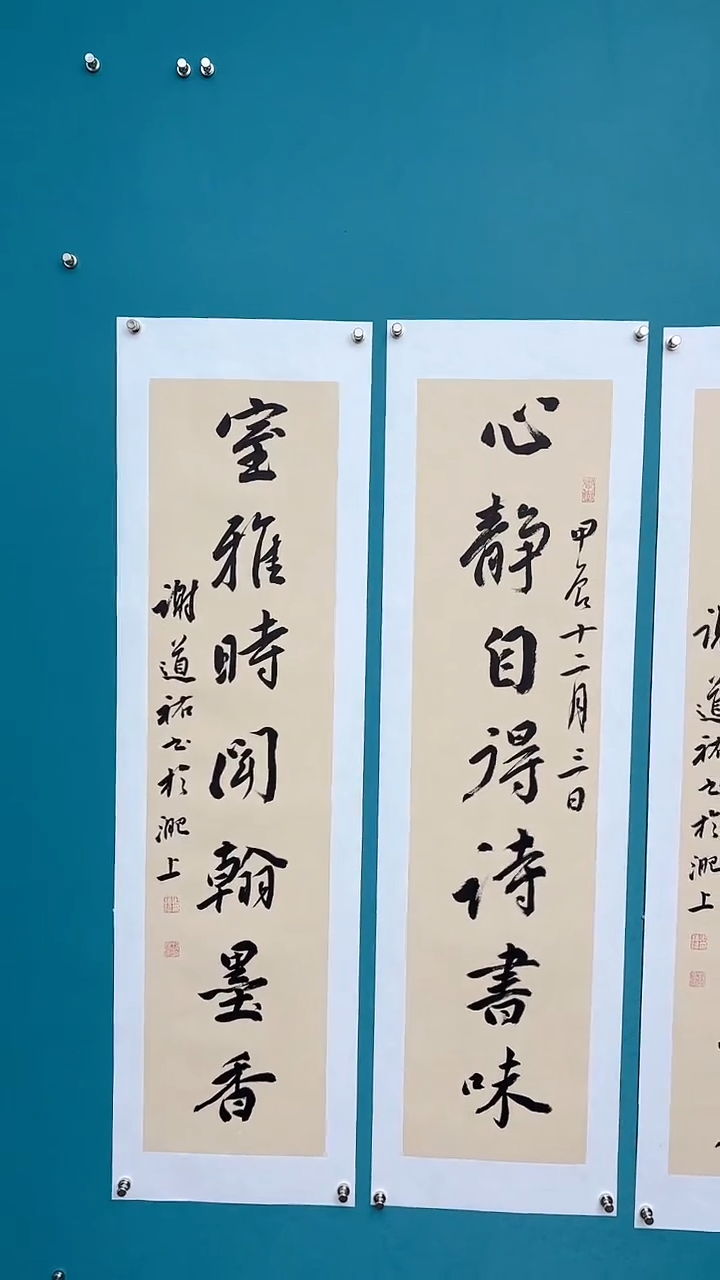 心静自得诗書味
甲辰十二月三日
室雅時闻翰墨香
謝道祐书於淝上
道祐书於淝上